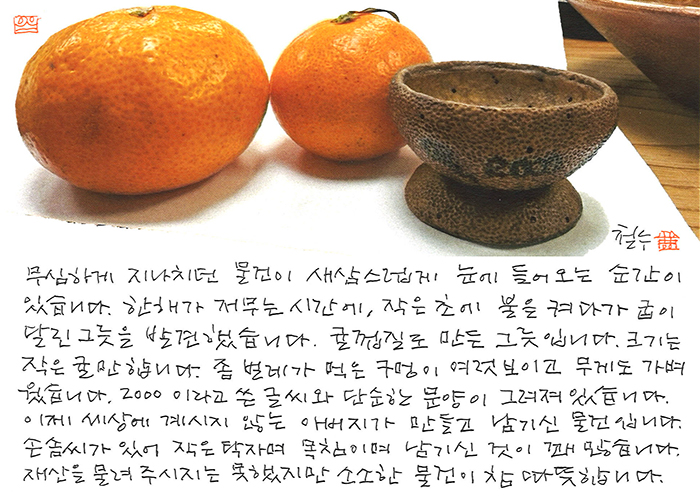 철수
무심하게 지나치던 물건이 새삼스럽게 눈에 들어오는 순간이
있습니다. 한해가 저무는 시간에, 작은 초에 불을 켜다가 굽이
달린 그릇을 발견했습니다. 귤껍질로 만든 그릇입니다. 크기는
작은 귤만합니다. 좀 벌레가 먹은 구멍이 여럿 보이고 무게도 가벼
웠습니다. 2000 이라고 쓴 글씨와 단순한 문양이 그려져 있습니다.
이제 세상에 계시지 않는 아버지가 만들고 남기신 물건입니다.
손솜씨가 있어 작은 탁자며 목침이며 남기신 것이 꽤 많습니다.
재산을 물려 주시지는 못했지만 소소한 물건이 참 따뜻합니다.